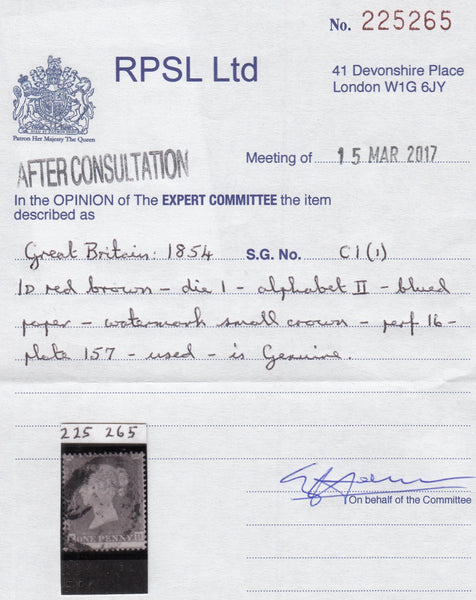 No. 225265
RPSL Ltd
41 Devonshire Place
London W1G 6JY
Patron Her Majesty The Queen
AFTER CONSULTATION
Meeting of 15 MAR 2017
In the OPINION of The EXPERT COMMITTEE the item
described as
Great Britain: 1854 S.G. No. C1(1)
1D red brown - die 1 - alphabet II - blued
paper - watermark small crown - perf 16 -
plate 157 - used - is Genuine.
225 265
ONE PENNY
On behalf of the Committee